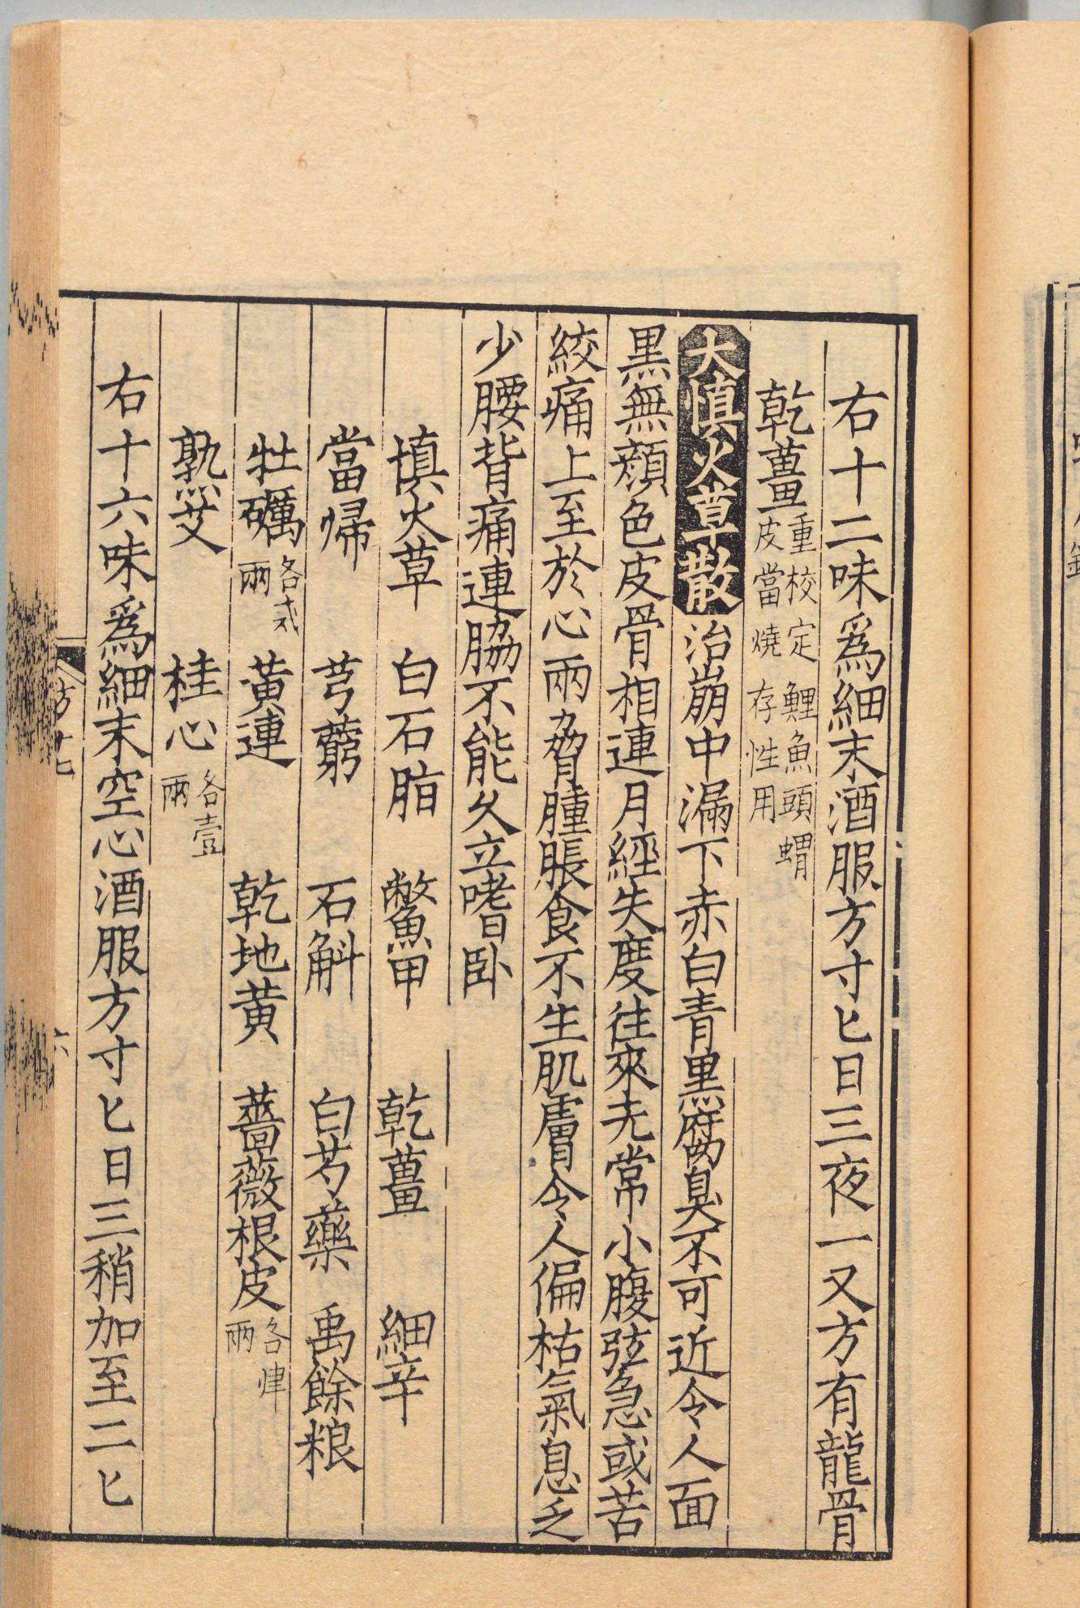 右十二味爲細末酒服方寸匕日三夜一又方有龍骨
乾薑重校定鯉魚頭蝟皮當燒存性用
大慎火草散治崩中漏下赤白青黑腐臭不可近令人面
黑無顔色皮骨相連月經失度往來无常小腹弦急或苦
絞痛上至於心兩脅腫脹食不生肌膚令人偏枯氣息乏
少腰背痛連脇不能久立嗜卧
慎火草 白石脂 鱉甲 乾薑 細辛
當歸 芎藭 石斛 白芍藥 禹餘粮
牡礪各貳兩 黃連 乾地黃 薔薇根皮各肆兩
熟艾 桂心各壹兩
右十六味爲細末空心酒服方寸匕日三稍加至二匕